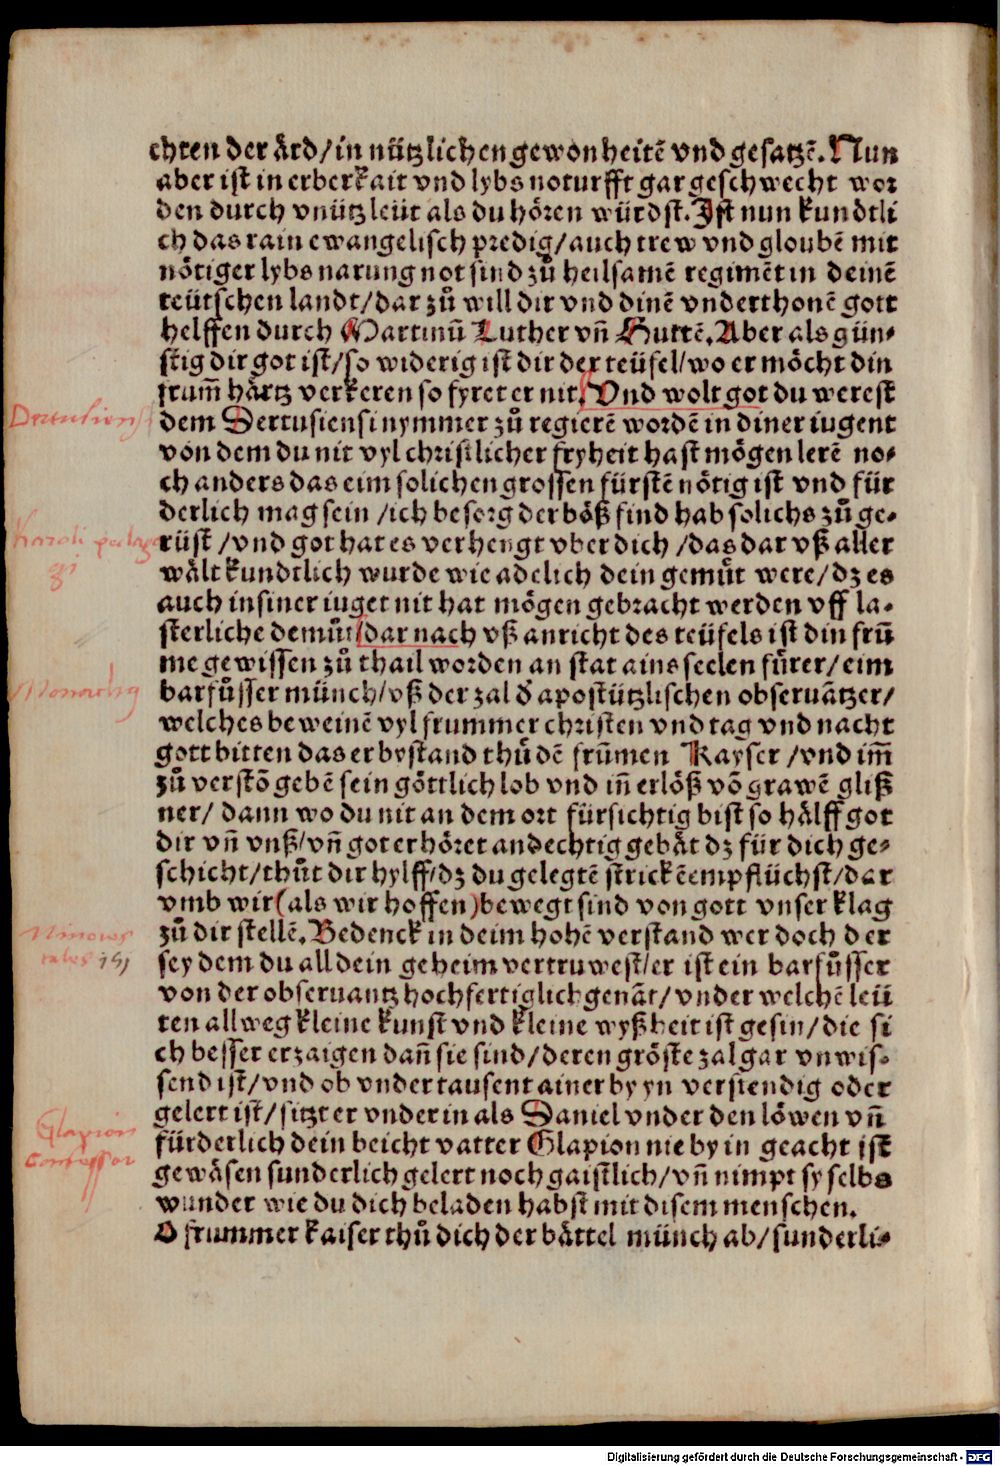 chten der ärd/in nützlichen gewonheitē vnd gesatzē. Nun
aber ist in erberkait vnd lybs noturfft gar geschwecht wor
den durch vnütz leüt als du hören würdst. Ist nun kundtli
ch das rain ewangelisch predig/auch trew vnd gloubē mit
nötiger lybs narung not sind zů heilsamē regimēt in deinē
teütschen landt/dar zů will dir vnd dinē vnderthonē gott
helffen durch Martinū Luther vn̄ Huttē. Aber als gün⸗
stig dir got ist/so widerig ist dir der teüfel/wo er möcht din
frum̄ härtz verkeren so fyret er nit. Vnd wolt got du werest
Dertusiensis
dem Dertusiensi nymmer zů regierē wordē in diner iugent
von dem du nit vyl christlicher fryheit hast mögen lerē no⸗
ch anders das eim solichen grossen fürstē nötig ist vnd für
derlich mag sein /ich besorg der böß find hab solichs zů ge⸗
Karoli pedago
gi
rüst /vnd got hat es verhengt vber dich /das dar vß aller
wält kundtlich wurde wie adelich dein gemůt were/dz es
auch in siner iuget nit hat mögen gebracht werden vff la⸗
sterliche demůt/dar nach vß anricht des teüfels ist din frū
me gewissen zů thail worden an stat ains seelen fürer/eim
Monachus
barfůsser münch/vß der zal d̓ apostützlischen obseruātzer/
welches beweinē vyl frummer christen vnd tag vnd nacht
gott bitten das er bystand thů dē frūmen Kayser /vnd im̄
zů verstō gebē sein göttlich lob vnd in̄ erlöß vō grawē gliß
ner/ dann wo du nit an dem ort fürsichtig bist so hälff got
dir vn̄ vnß/vn̄ got erhöret andechtig gebät dz für dich ge⸗
schicht/thůt dir hylff/dz du gelegtē strickē empflüchst/dar
vmb wir(als wir hoffen)bewegt sind von gott vnser klag
Minores
zů dir stellē. Bedenck in deim hohē verstand wer doch der
sey dem du all dein geheim vertruwest/er ist ein barfůsser
von der obseruantz hochfertiglich genāt/vnder welchē leü
ten allweg kleine kunst vnd kleine wyßheit ist gesin/die si
ch besser erzaigen dan̄ sie sind/deren gröste zal gar vnwis⸗
send ist/vnd ob vnder tausent ainer by yn verstendig oder
gelert ist/sitzt er vnder in als Daniel vnder den löwen vn̄
Glapion
confessor
fürderlich dein beicht vatter Glapion nie by in geacht ist
gewäsen sunderlich gelert noch gaistlich/vn̄ nimpt sy selbs
wunder wie du dich beladen habst mit disem menschen.
O frummer kaiser thů dich der bättel münch ab/sunderli⸗
Digitalisierung gefördert durch die Deutsche Forschungsgemeinschaft - DFG